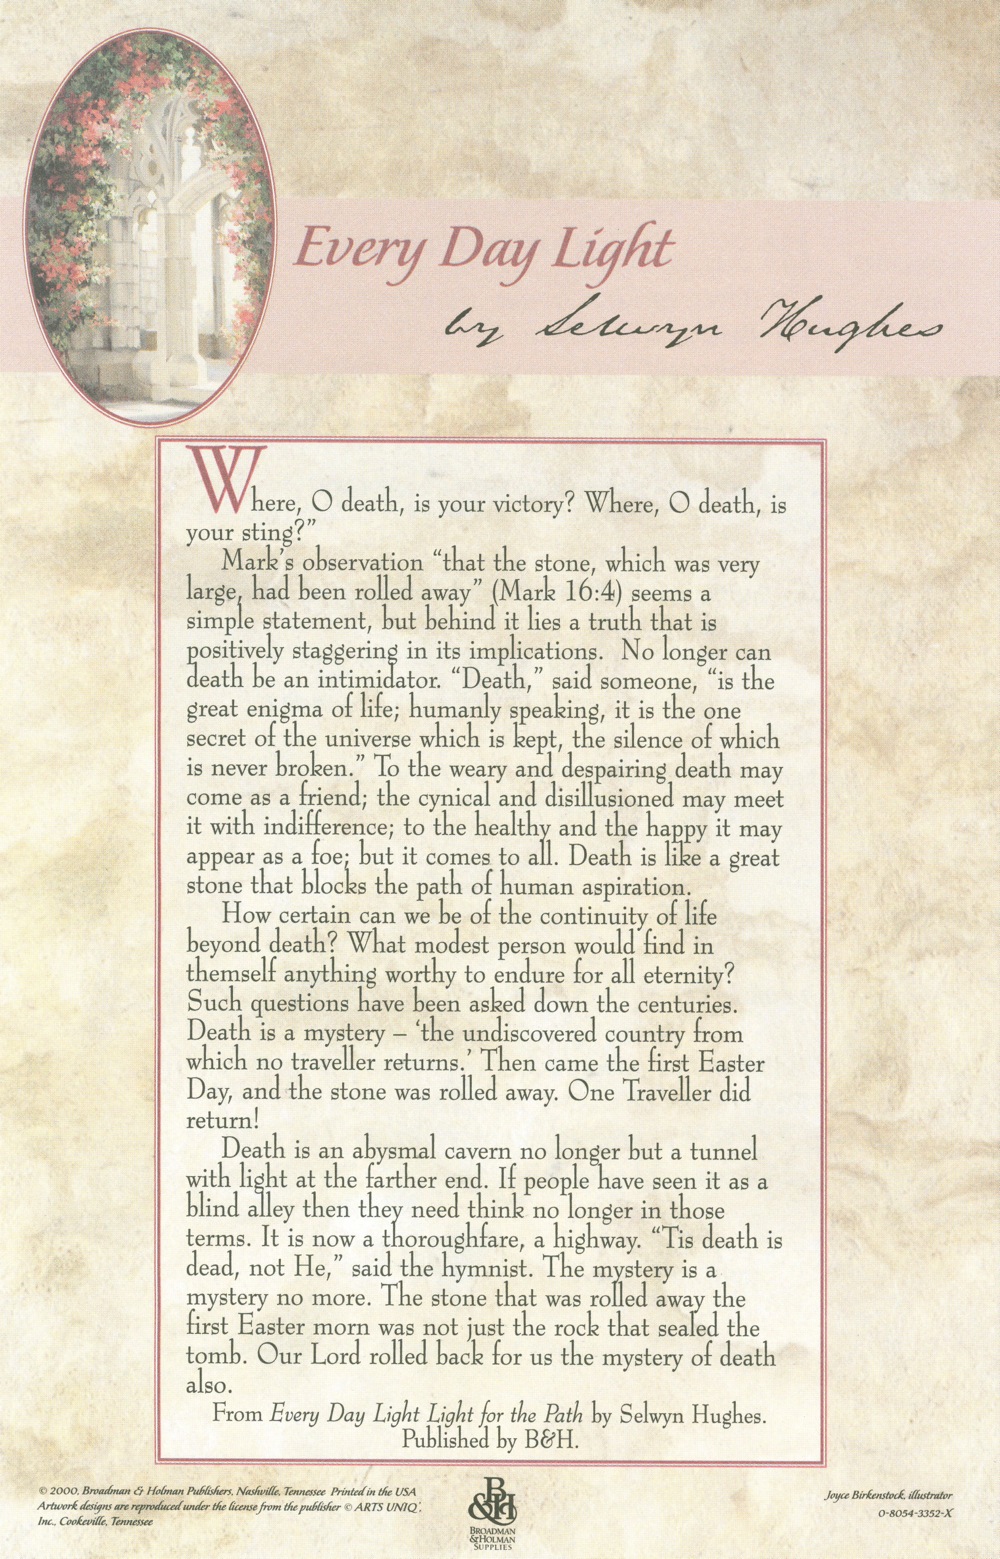 Every Day Light
by Selwyn Hughes
Where, O death, is your victory? Where, O death, is
your sting?”
Mark’s observation “that the stone, which was very
large, had been rolled away” (Mark 16:4) seems a
simple statement, but behind it lies a truth that is
positively staggering in its implications.  No longer can
death be an intimidator. “Death,” said someone, “is the
great enigma of life; humanly speaking, it is the one
secret of the universe which is kept, the silence of which
is never broken.” To the weary and despairing death may
come as a friend; the cynical and disillusioned may meet
it with indifference; to the healthy and the happy it may
appear as a foe; but it comes to all. Death is like a great
stone that blocks the path of human aspiration.
How certain can we be of the continuity of life
beyond death? What modest person would find in
themself anything worthy to endure for all eternity?
Such questions have been asked down the centuries.
Death is a mystery – ‘the undiscovered country from
which no traveller returns.’ Then came the first Easter
Day, and the stone was rolled away. One Traveller did
return!
Death is an abysmal cavern no longer but a tunnel
with light at the farther end. If people have seen it as a
blind alley then they need think no longer in those
terms. It is now a thoroughfare, a highway. “Tis death is
dead, not He,” said the hymnist. The mystery is a
mystery no more. The stone that was rolled away the
first Easter morn was not just the rock that sealed the
tomb. Our Lord rolled back for us the mystery of death
also.
From Every Day Light Light for the Path by Selwyn Hughes.
Published by B&H.
© 2000, Broadman & Holman Publishers, Nashville, Tennessee  Printed in the USA
Artwork designs are reproduced under the license from the publisher © ARTS UNIQ’,
Inc., Cookeville, Tennessee
B&H
BROADMAN
&HOLMAN
SUPPLIES
Joyce Birkenstock, illustrator
0-8054-3352-X